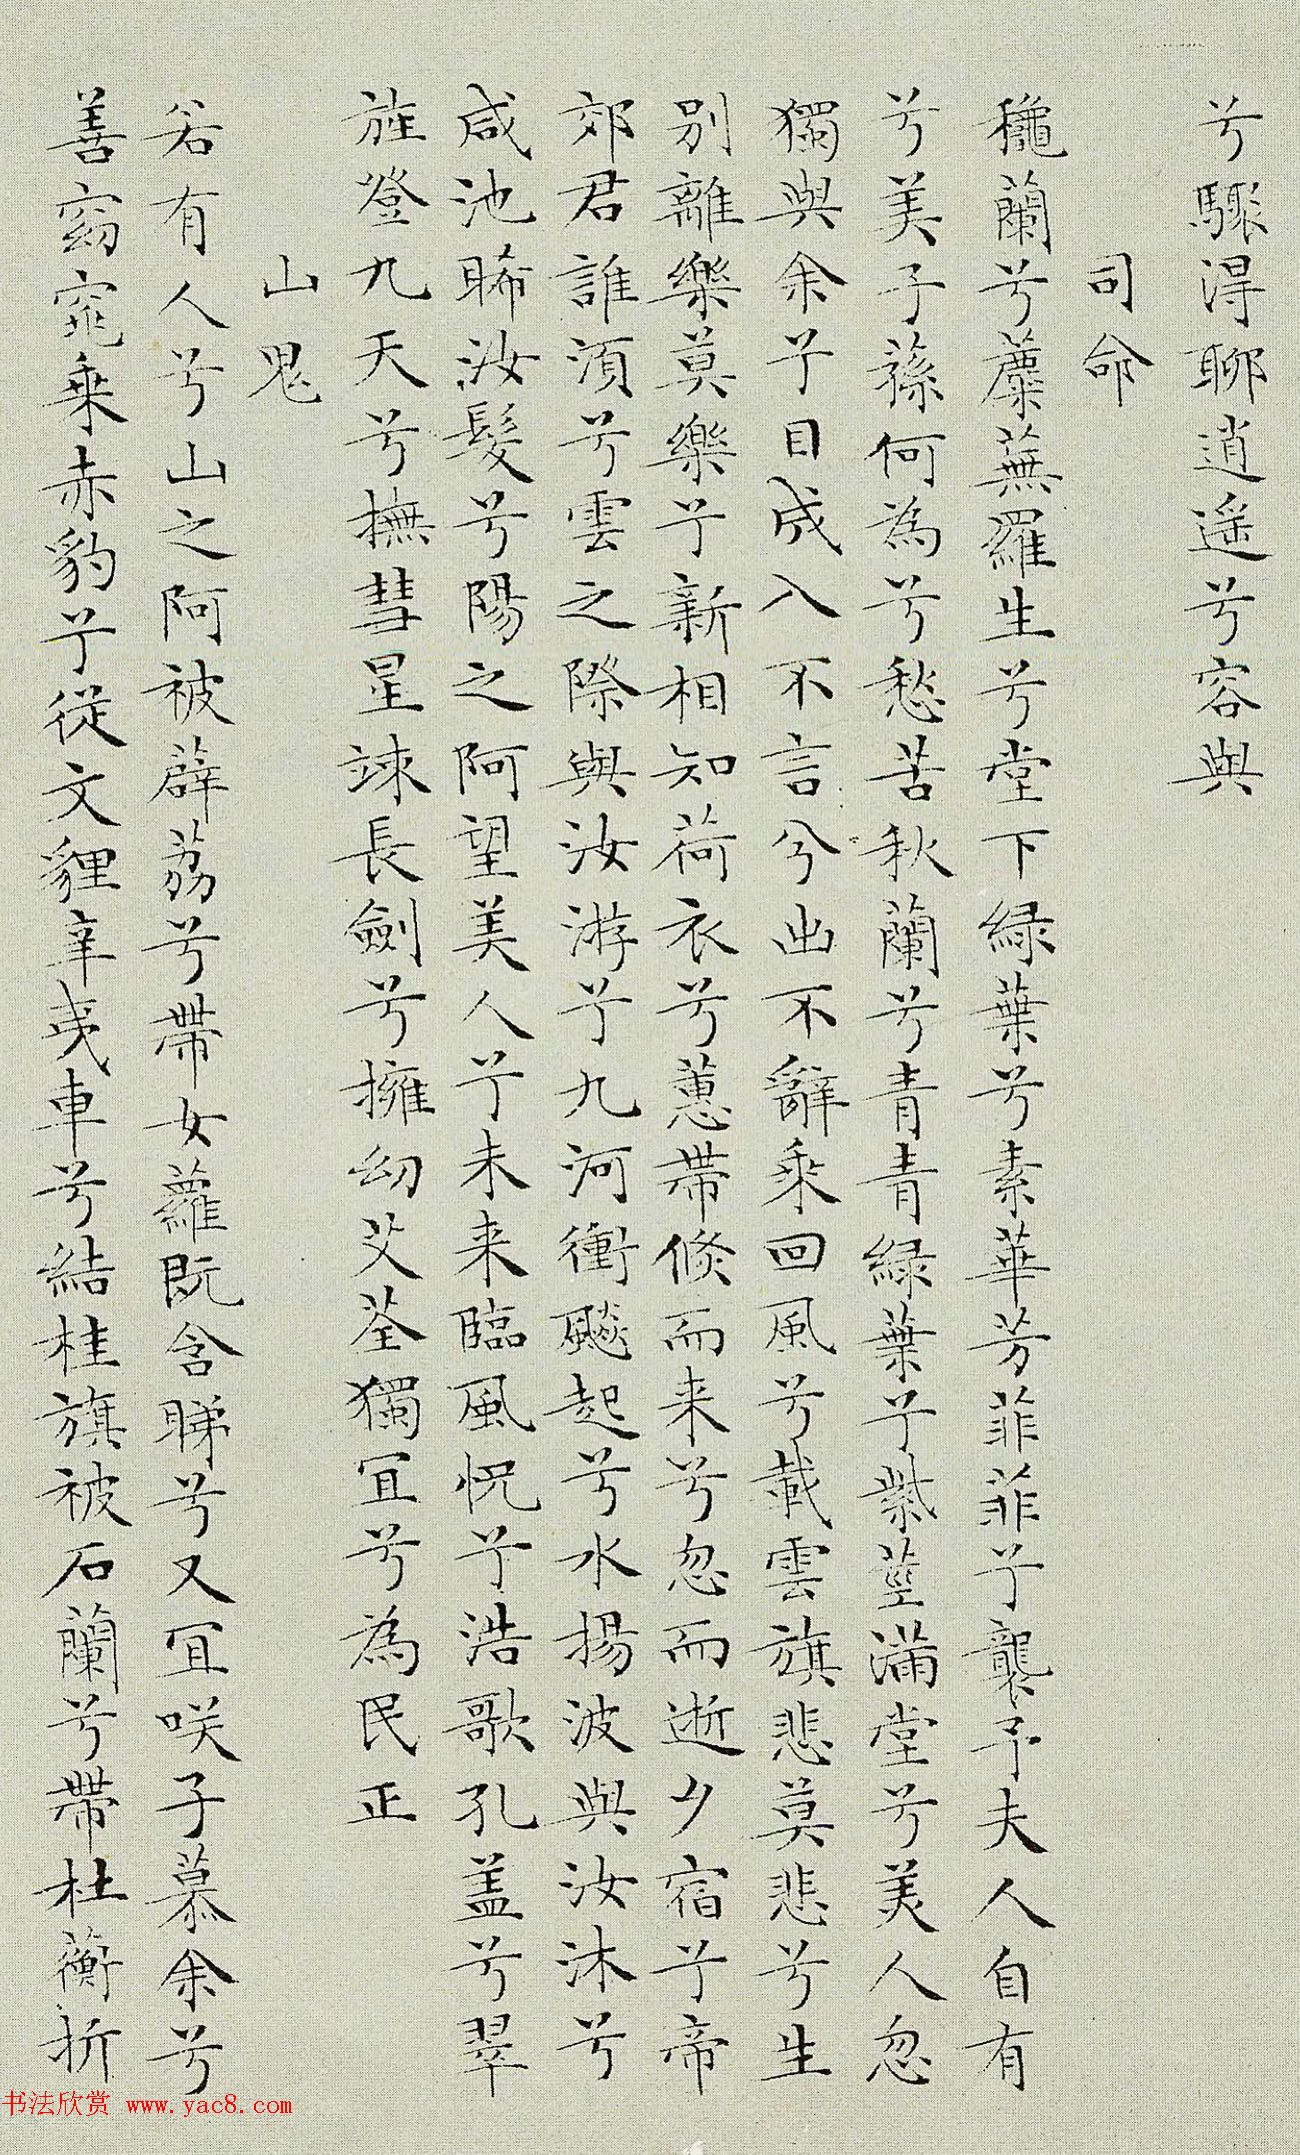 兮驟得聊逍遥兮容與
司命
穐蘭兮蘪蕪羅生兮堂下緑葉兮素華芳菲菲兮襲予夫人自有
兮美子蓀何為兮愁苦秋蘭兮青青緑葉兮紫莖滿堂兮美人忽
獨與余兮目成入不言兮出不辭乘回風兮載雲旗悲莫悲兮生
別離樂莫樂兮新相知荷衣兮蕙帶倐而来兮忽而逝夕宿兮帝
郊君誰湏兮雲之際與汝游兮九河衝飈起兮水揚波與汝沐兮
咸池晞汝髮兮陽之阿望美人兮未来臨風怳兮浩歌孔盖兮翠
旌登九天兮撫彗星竦長劍兮擁幼艾荃獨冝兮為民正
山鬼
若有人兮山之阿被薜荔兮帶女蘿既含睇兮又冝咲子慕余兮
善窈窕乘赤豹兮從文貍辛夷車兮結桂旗被石蘭兮帶杜蘅折
书法欣赏 www.yac8.com